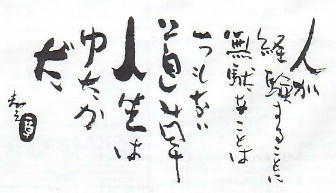 人が
経験することに
無駄なことは
一つもない
道草
人生は
ゆたか
だ